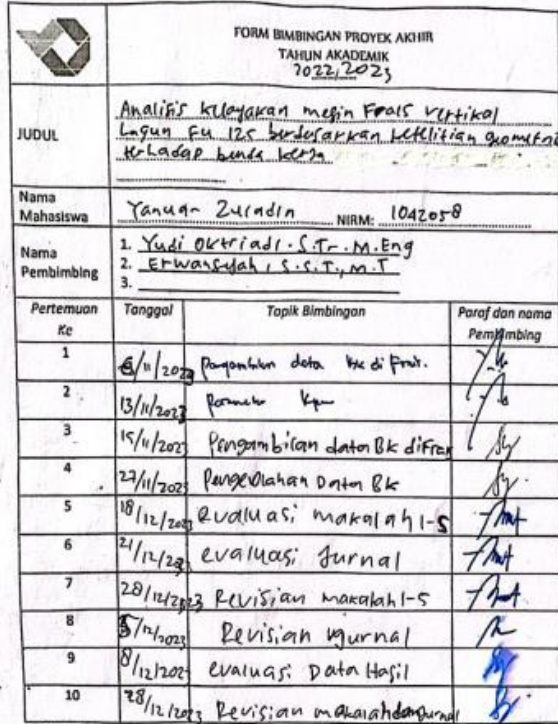 FORM BIMBINGAN PROYEK AKHIR
TAHUN AKADEMIK
2022/2023
JUDUL
Analisis kelayakan mesin Frais vertikal
Lagun Fu 125 berdasarkan ketelitian geometri
terhadap benda kerja
Nama Mahasiswa
Yanuar Zuradin NIRM: 1042058
Nama Pembimbing
1. Yudi Oktriadi. S.Tr. M.Eng
2. Erwansyah, S.S.T., M.T
3.
Pertemuan Ke Tanggal Topik Bimbingan Paraf dan nama Pembimbing
1 6/11/2023 data di Frais.
2 13/11/2023
3 15/11/2023 Pengambilan data Bk difrais
4 27/11/2023 Pengolahan Data Bk
5 18/12/2023 evaluasi makalah 1-5
6 21/12/2023 evaluasi Jurnal
7 28/12/2023 Revisian makalah 1-5
8 5/12/2023 Revisian Jurnal
9 8/12/2023 evaluasi Data Hasil
10 28/12/2023 Revisian makalah dan Jurnal